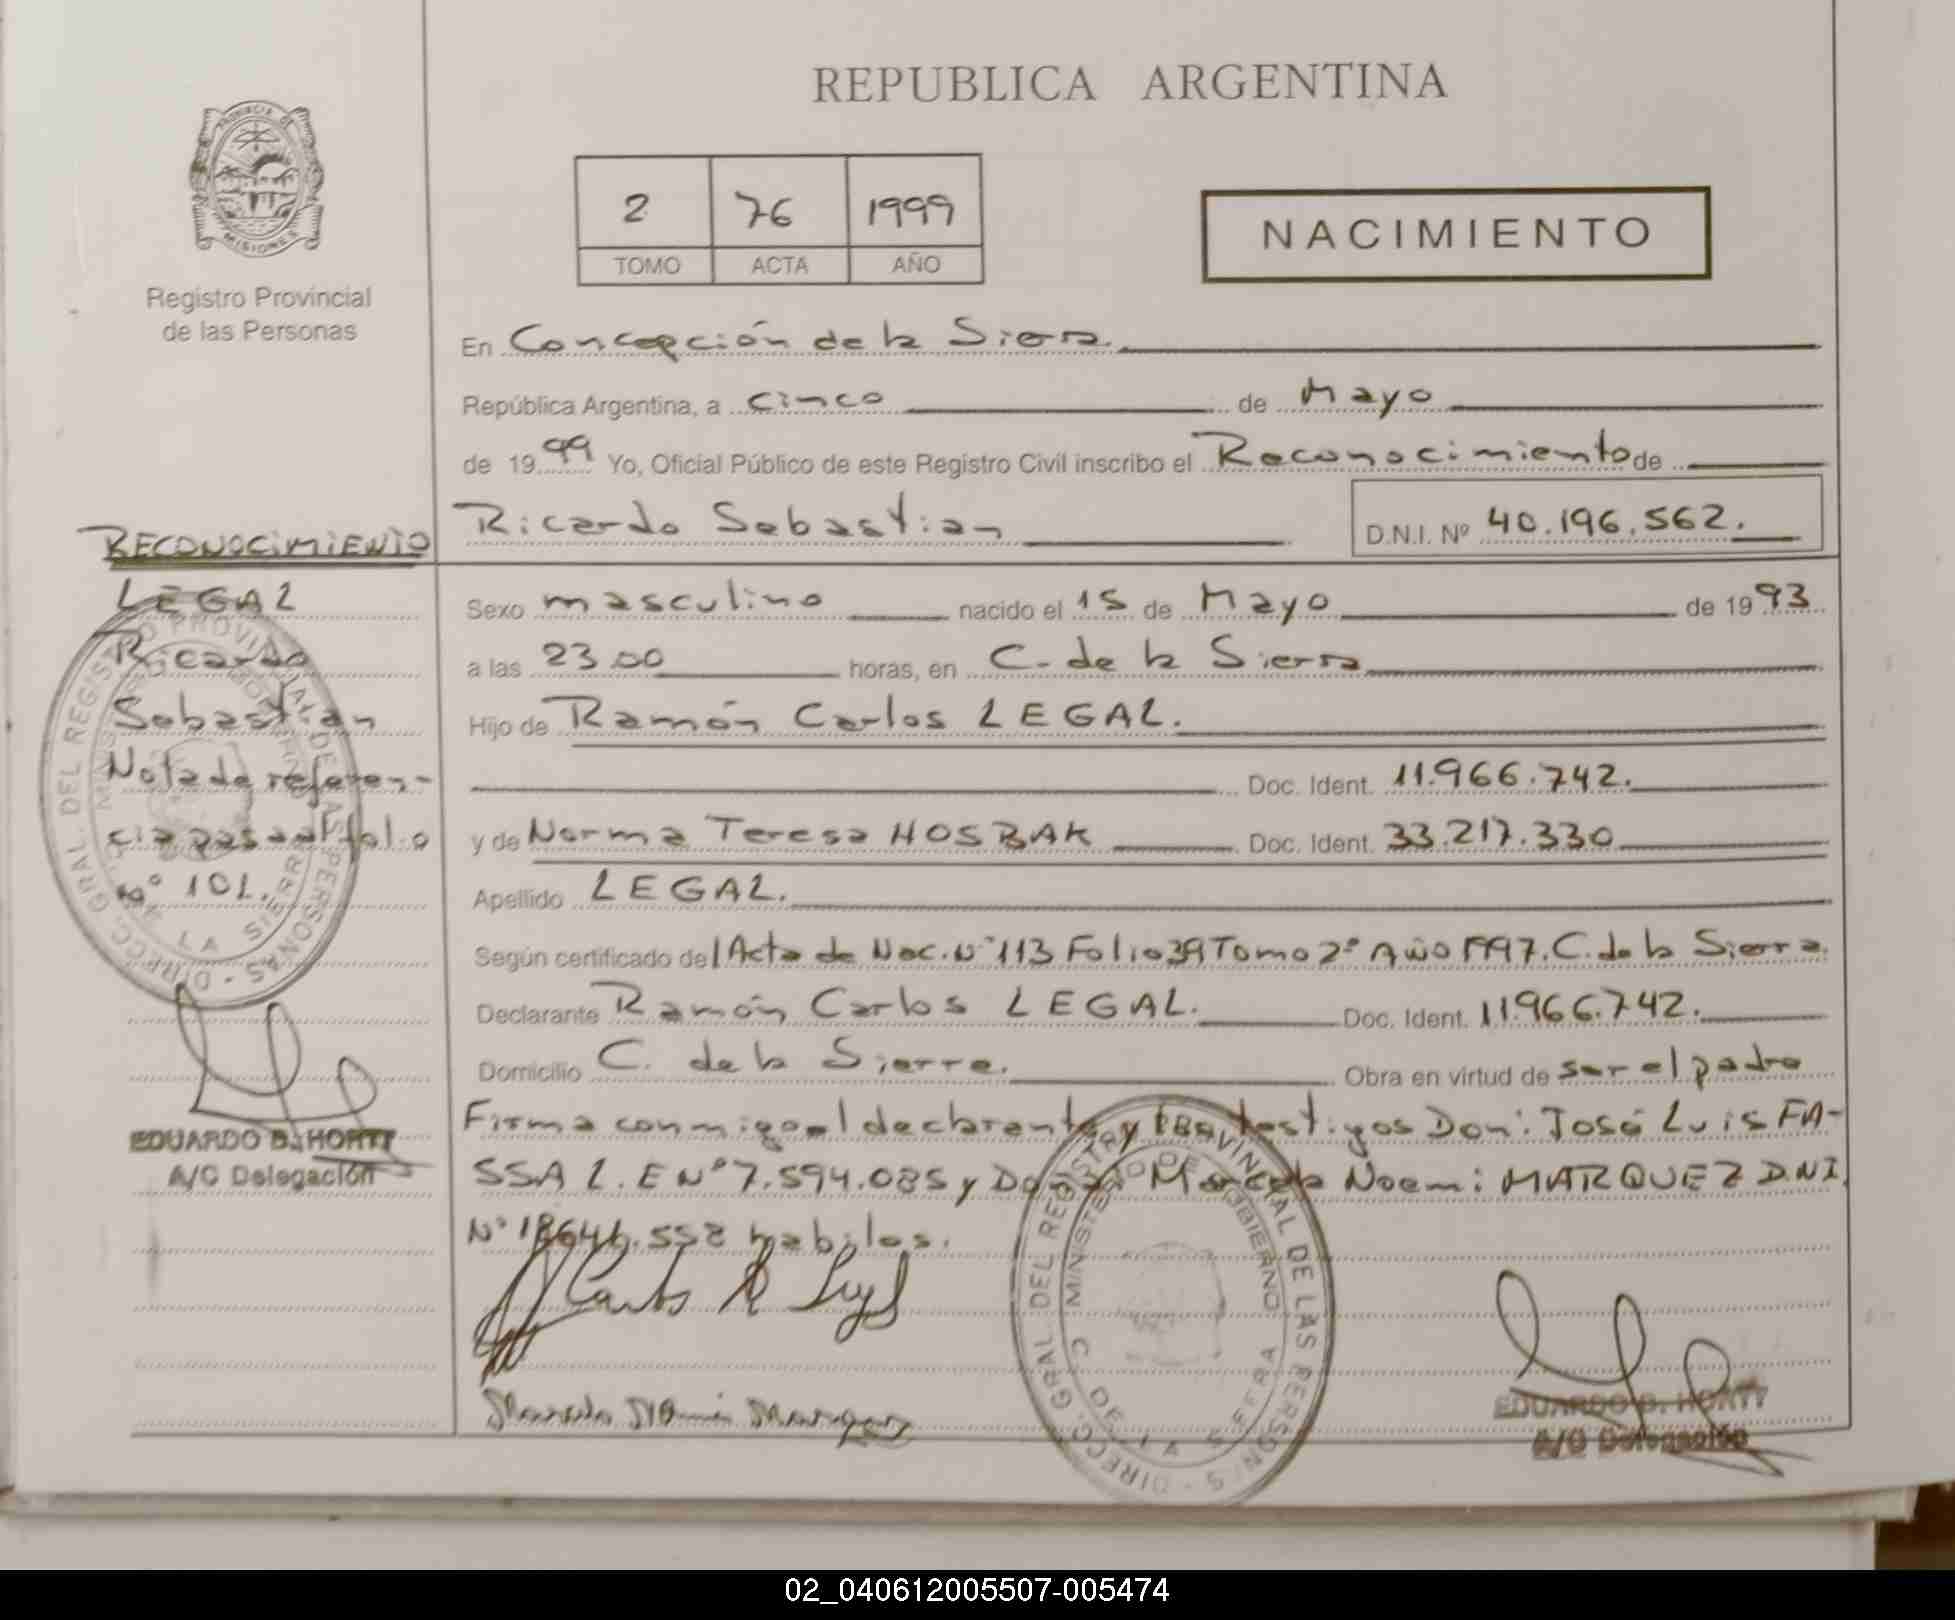 REPUBLICA ARGENTINA
PROVINCIA DE MISIONES
Registro Provincial
de las Personas
2 76 1999
TOMO ACTA AÑO
NACIMIENTO
En Concepción de la Sierra.
República Argentina, a cinco de Mayo
de 1999 Yo, Oficial Público de este Registro Civil inscribo el Reconocimiento de
Ricardo Sebastian D.N.I. Nº 40.196.562.
Sexo masculino nacido el 15 de Mayo de 1993
a las 23 00 horas, en C. de la Sierra
Hijo de Ramón Carlos LEGAL.
Doc. Ident. 11.966.742.
y de Norma Teresa HOSBAK Doc. Ident. 33.217.330
Apellido LEGAL.
Según certificado del Acta de Nac. Nº 113 Folio 39 Tomo 2º Año 1997. C. de la Sierra.
Declarante Ramón Carlos LEGAL. Doc. Ident. 11.966.742.
Domicilio C. de la Sierra. Obra en virtud de ser el padre
Firma conmigo el declarante y los testigos Don: José Luis FA-
SSA L.E Nº 7.594.085 y Doña Marcela Noemi MARQUEZ D.N.I.
Nº habiles.
RECONOCIMIENTO
LEGAL
Ricardo
Sebastian
Nota de referen-
cia pasa al folio
Nº 101.
DIRECC. GRAL. DEL REGISTRO PROVINCIAL DE LAS PERSONAS
MINISTERIO DE GOBIERNO
C. DE LA SIERRA
EDUARDO D. HORTT
A/C Delegación
DIRECC. GRAL DEL REGISTRO PROVINCIAL DE LAS PERSONAS
MINISTERIO DE GOBIERNO
C. DE LA SIERRA
Marcela Noemi Marquez
EDUARDO D. HORTT
A/C Delegación
02_040612005507-005474